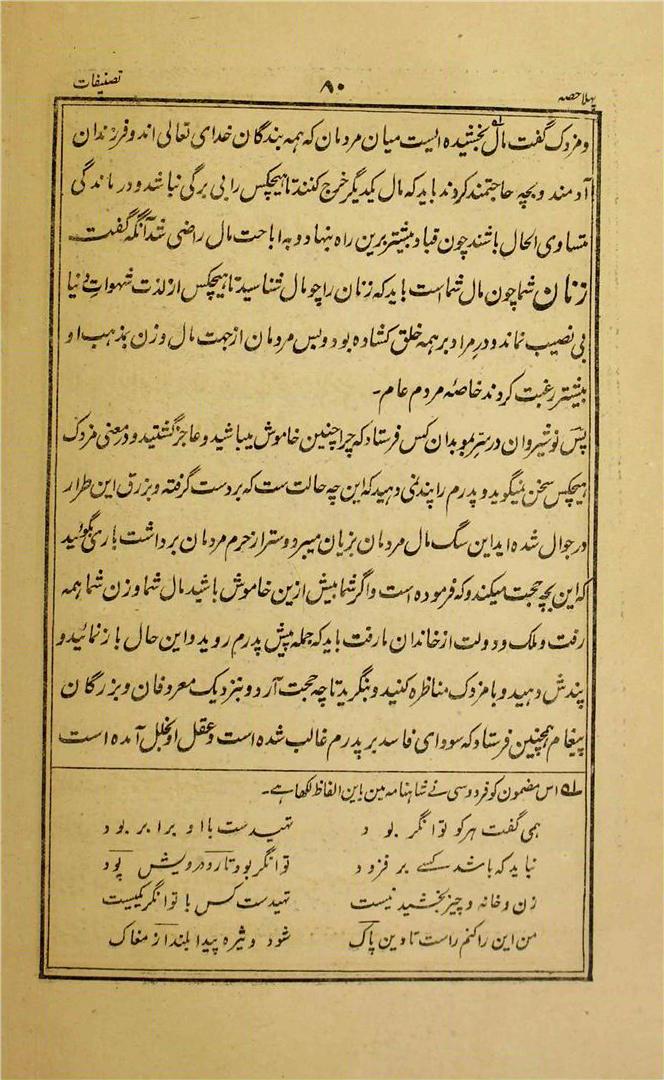 پہلا حصہ
۸۰
تصنیفات
ومزدک گفت مال بخشیده ایست میان مردمان که همه بندگان خدای تعالی اند وفرزندان
آدمند وبچه حاجتمند گردند باید که مال یکدیگر خرج کنند تا هیچکس را بی برگی نباشد ودرماندگی
متساوی الحال باشند چون قباد بیشتر برین راه بنهاد وبه اباحت مال راضی شد آنگه گفت
زنان شما چون مال شما است باید که زنان را چو مال شناسید تا هیچکس از لذت شهوات دنیا
بی نصیب نماند ودر مراد بر همه خلق کشاده بود وپس مردمان از جهت مال وزن بمذهب او
بیشتر رغبت کردند خاصه مردم عام۔
پس نوشیروان در سر بموبدان کس فرستاد که چرا چنین خاموش میباشید وعاجز گشتید ودر معنی مزدک
هیچکس سخن نمیگوید وپدرم را پند نمی دهید که این چه حالت ست که بر دست گرفته وبزرق این طرار
در جوال شده اید این سگ مال مردمان بزیان میبرد وستر از حرم مردمان برداشت باری بگوئید
که این بچه حجت میکند وکه فرموده است واگر شما بیش ازین خاموش باشید مال شما وزن شما همه
رفت وملک ودولت از خاندان ما رفت باید که جمله پیش پدرم روید واین حال باز نمائید و
پندش دهید وبا مزدک مناظره کنید وبنگرید تا چه حجت آرد وبنزدیک معروفان وبزرگان
پیغام همچنین فرستاد که سودای فاسد بر پدرم غالب شده است وعقل او بخلل آمده است
لہ اس مضمون کو فردوسی نے شاہنامہ مین باین الفاظ لکھا ہے۔
همی گفت هر کو توانگر بود تهیدست با او برابر بود
نباید که باشد کسے بر فزود توانگر بود تار ودرویش پود
زن وخانه وچیز بخشیدنیست تهیدست کس با توانگر یکیست
من این را کنم راست تا دین پاک شود ویژه پیدا بلند از مغاک